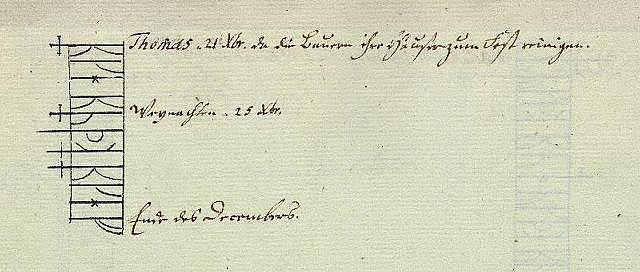 Thomas. 21 Xbr. da die Bauern ihre Häuser zum Fest reinigen.
Weynachten. 25 Xbr.
Ende des Decembers.